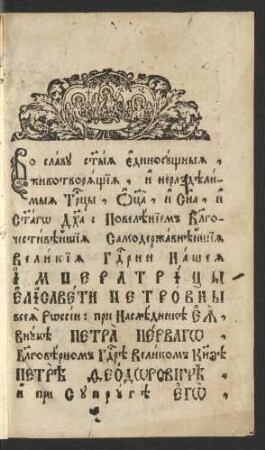 Во славу ст҃ыѧ єдиносущныѧ,
животворѧщїѧ, и нераздѣли-
мыѧ Трⷪ҇цы, Ѻ҆ц҃а, и Сн҃а, и
Ст҃агѡ Дх҃а: Повелѣнїемъ Благо-
честивѣйшїѧ Самодержавнѣйшїѧ
Великїѧ Гдⷭ҇рни Нашеѧ
ІМПЕРАТРІЦЫ
ЕЛІСАВЕТИ ПЕТРОВНЫ
всеѧ Рѡссїи: при Наслѣдникѣ Еѧ,
Внукѣ ПЕТРА ПЕРВАГѠ,
Благовѣрномъ Гдⷭ҇рѣ Великомъ Кнѕ҃ѣ
ПЕТРѢ ѲЕОДѠРОВИЧѢ,
И при СУПРУГѢ ЕГѠ,